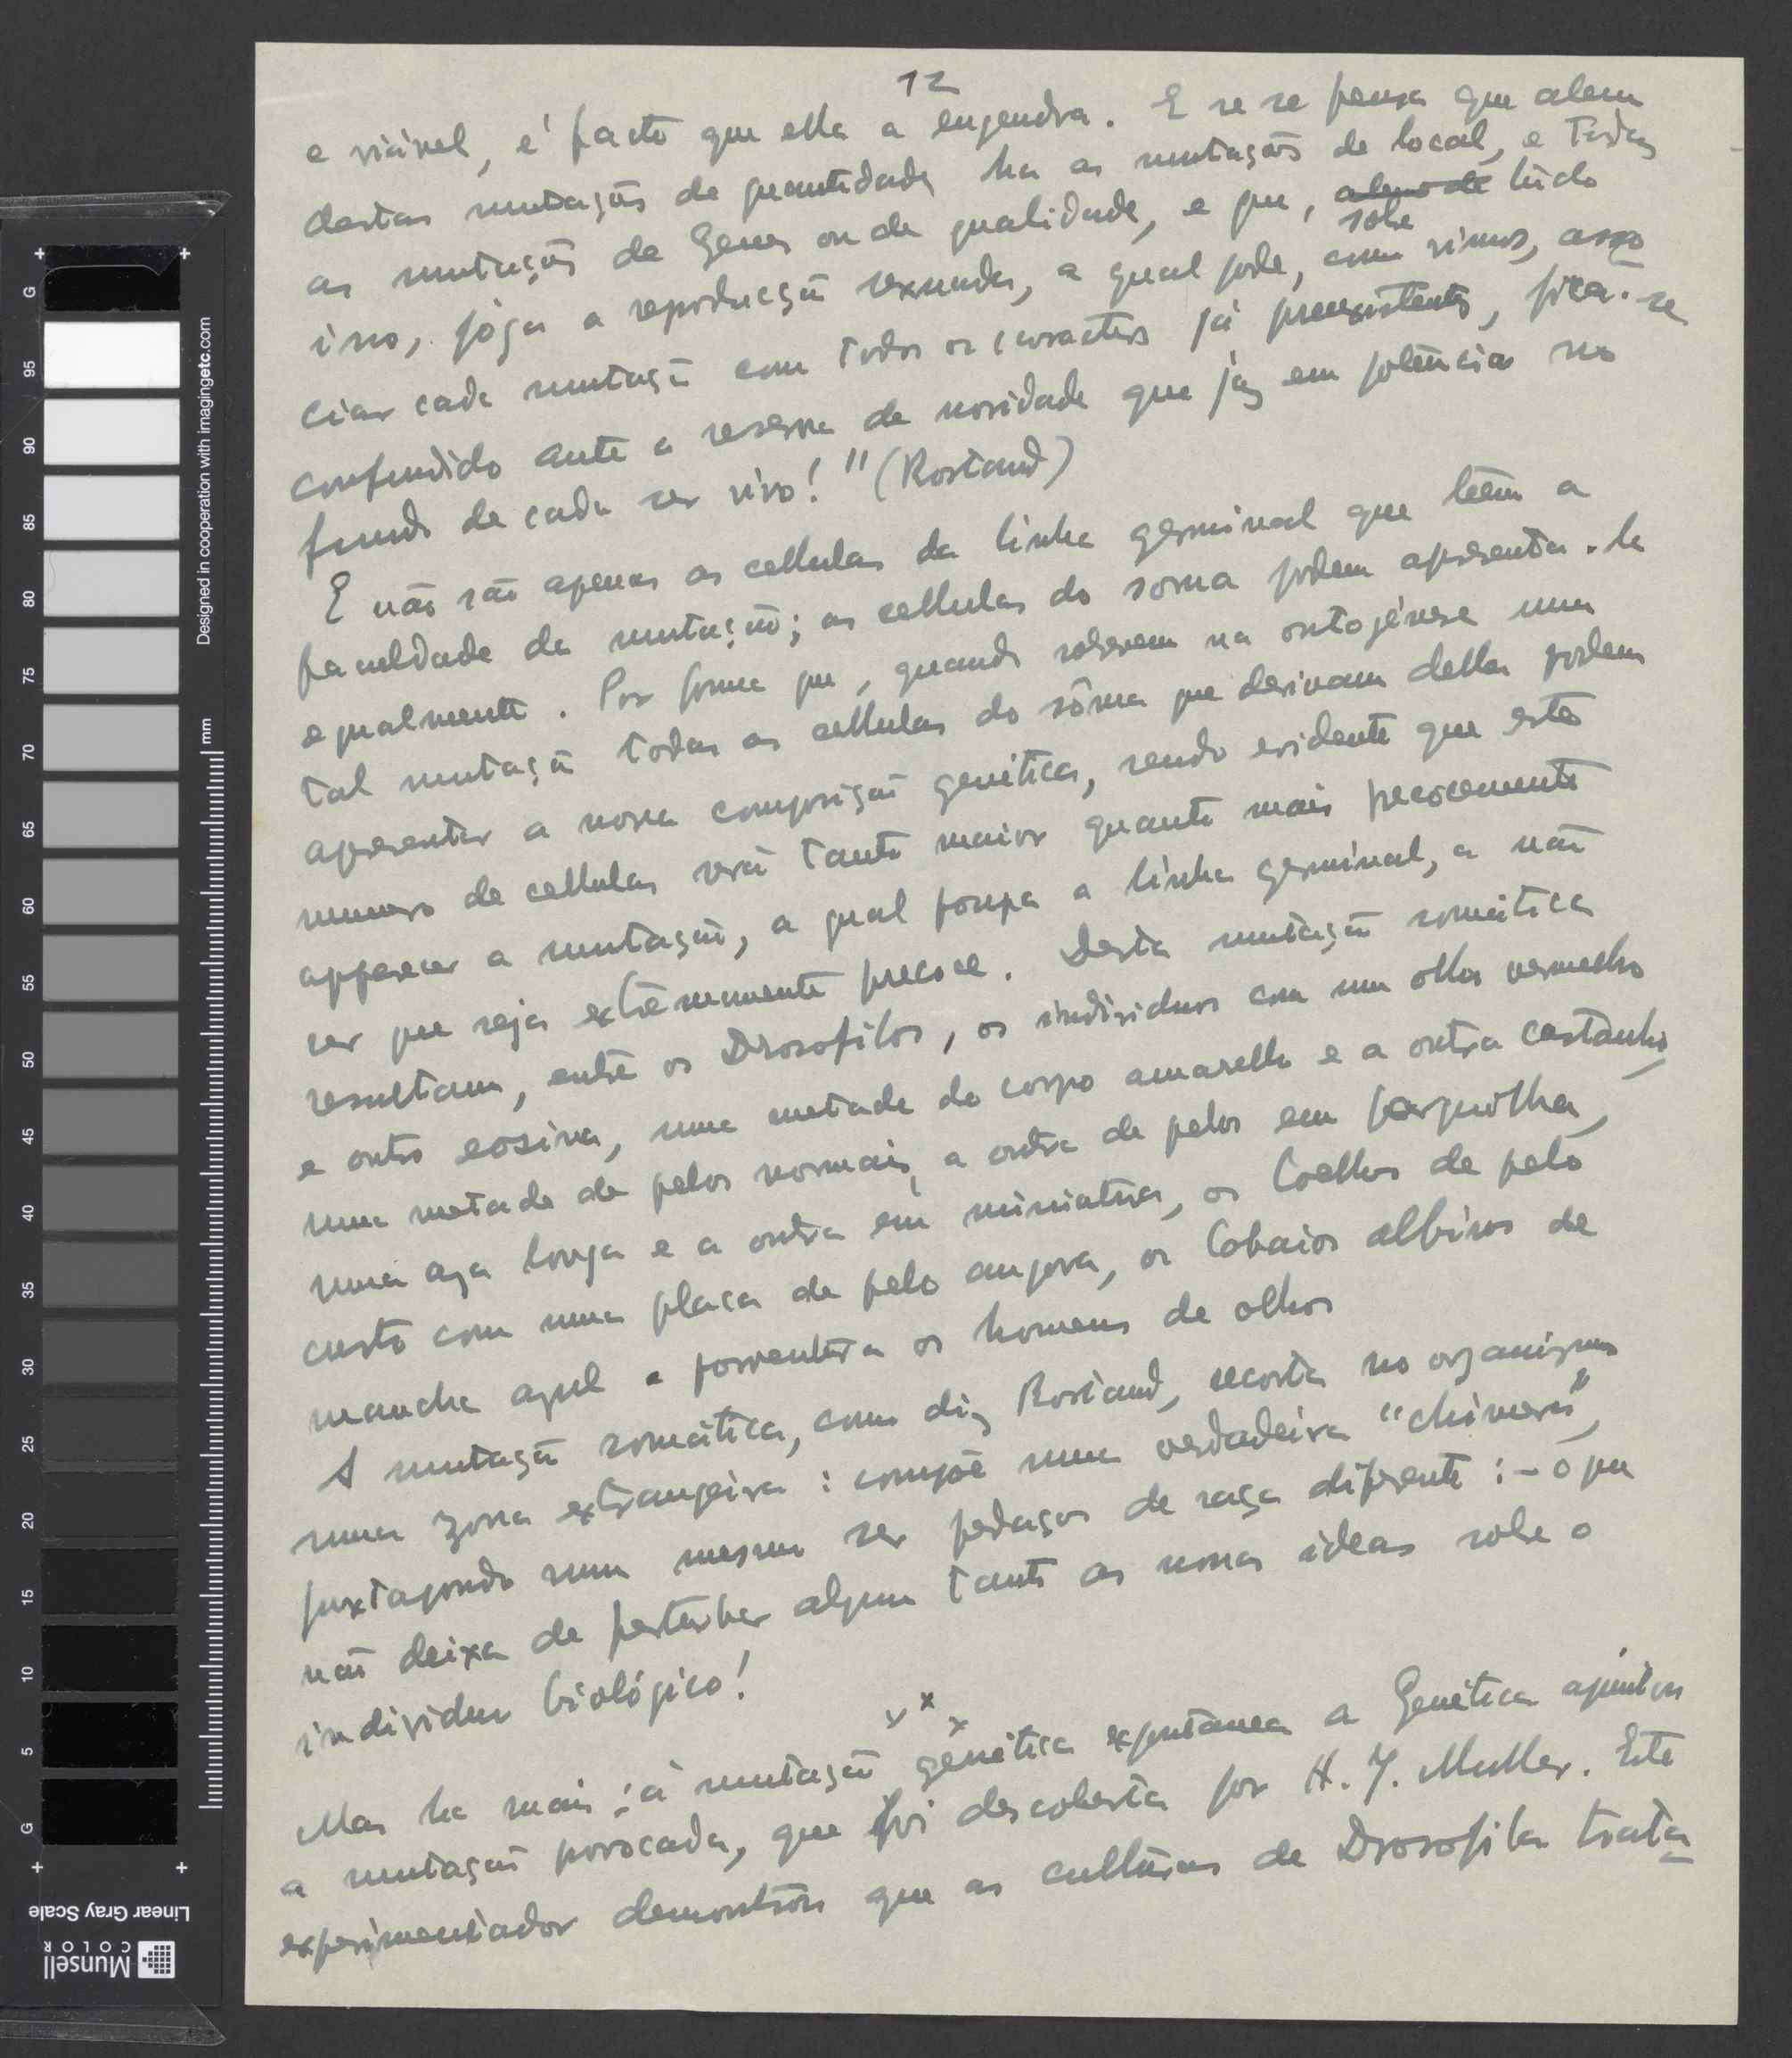 12
e viável, é facto que ella a engendra. E se se pensa que alem
destas mutações de quantidade ha as mutações de local, e todas
as mutações de Genes ou de qualidade, e que, alem de sobre tudo
isso, joga a reproducção sexuada, a qual pode, como vimos, asso
ciar cada mutação com todos os caracteres já preexistentes, fica-se
confundido ante a reserva de novidade que jaz em potência no
fundo de cada ser vivo!" (Rostand)
E não são apenas as cellulas da linha germinal que teem a
faculdade da mutação; as cellulas do soma podem apresenta-la
egualmente. Por forma que, quando sobrevem na ontogénese uma
tal mutação todas as cellulas do sôma que derivam della podem
apresentar a nova composição genética, sendo evidente que este
numero de cellulas será tanto maior quanto mais precocemente
apparecer a mutação, a qual poupa a linha germinal, a não
ser que seja extremamente precoce. Desta mutação somática
resultam, entre os Drosofilos, os individuos com um olho vermelho
e outro eosina, uma metade do corpo amarello e a outra castanho,
uma metade de pelos normais, a outra de pelos em forquilha,
uma aza longa e a outra em miniatura, os Coelhos de pelo
curto com uma placa de pelo angora, os Cobaios albinos de
mancha azul e porventura os homens de olhos
A mutação somática, como diz Rostand, recorta no organismo
uma zona extrangeira: compõe uma verdadeira "chimera",
juxtapondo num mesmo ser pedaços de raça diferente: - o que
não deixa de perturbar algum tanto as nossas ideas sobre o
individuo biológico!
x x x
Mas ha mais: á mutação genética expontanea a Genética ajuntou
a mutação provocada, que foi descoberta por H. J. Muller. Este
experimentador demonstrou que as culturas de Drosofila trata
Designed in cooperation with imagingetc.com
mm
G 95 90 85 80 75 70 65 60 55 50 45 40 35 30 25 20 15 10 5 G
Linear Gray Scale
Munsell
COLOR